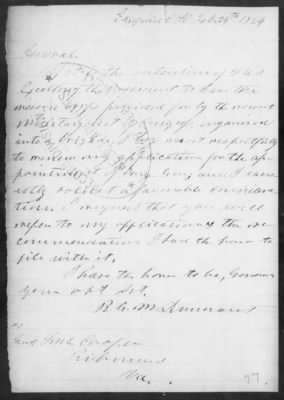 General
It is the intention of the
President to have the
reserve corps provided for by the recent
Military act of Congress, organized
into a brigade, I beg most respectfully
to renew my application for the ap-
pointment of Brig. Gen. and I earn-
estly solicit a favorable considera-
tion. I request that you will
refer to my application & the re-
commendations I had the honor to
file with it.
I have the honor to be, General
Your obt Svt.
To
Genl Cooper
Richmond
Va.
77.